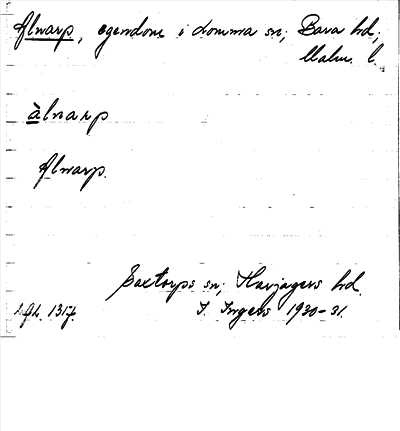 Alnarp, egendom i Lomma sn; Bara hd,
Malm. l.
àlnarp
Alnarp.
Saxtorps sn; Harjagers hd.
1317. I. Ingers 1930-31.